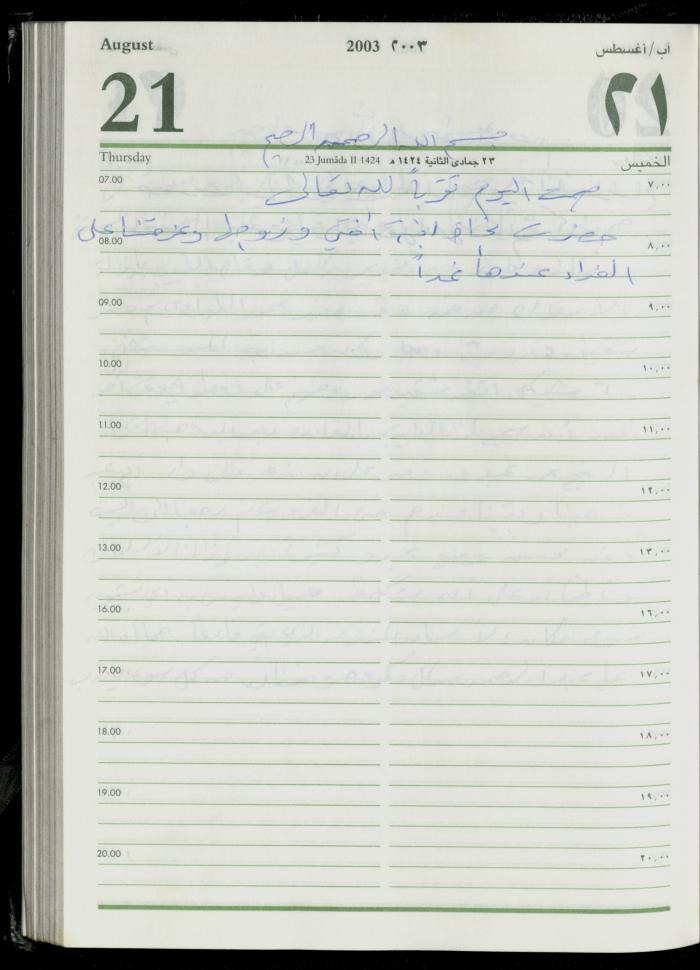 August 2003 ٢٠٠٣ آب/أغسطس
21 ٢١
بسم الله الرحمن الرحيم
Thursday 23 Jumâda II 1424 ٢٣ جمادى الثانية ١٤٢٤ هـ الخميس
07.00 ٧,٠٠
صمت اليوم تقرباً لله تعالى
حضرت ابنة أختي وزوجها وعزمتنا على
08.00 ٨,٠٠
الغداء عندها غداً
09.00 ٩,٠٠
10.00 ١٠,٠٠
11.00 ١١,٠٠
12.00 ١٢,٠٠
13.00 ١٣,٠٠
16.00 ١٦,٠٠
17.00 ١٧,٠٠
18.00 ١٨,٠٠
19.00 ١٩,٠٠
20.00 ٢٠,٠٠